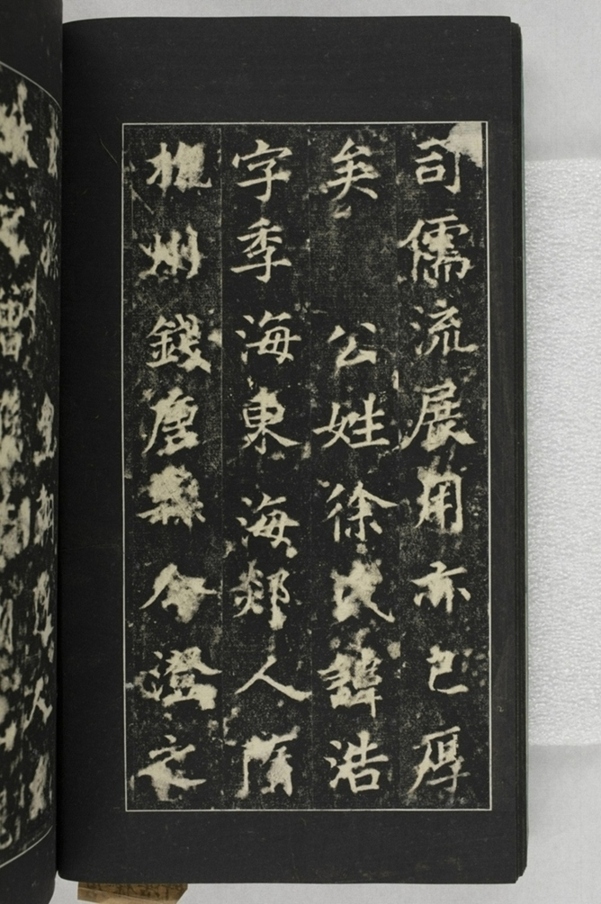 司儒流展用亦已厚
矣　公姓徐氏諱浩
字季海東海郯人隋
杭州錢唐縣令澄之